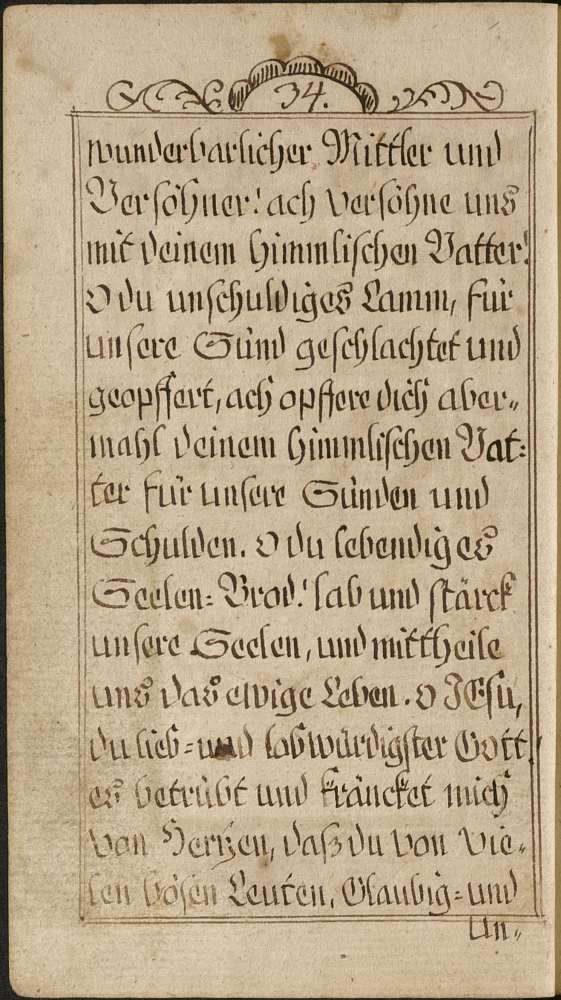 34.
wunderbarlicher Mittler und
Versöhner! ach versöhne uns
mit deinem himmlischen Vatter!
O du unschuldiges Lamm, für
unsere Sünd geschlachtet und
geopffert, ach opffere dich aber„
mahl deinem himmlischen Vat:
ter für unsere Sünden und
Schulden. O du lebendiges
Seelen: Brod! lab und stärck
unsere Seelen, und mittheile
uns das ewige Leben. O JEsu,
du lieb= und lobwürdigster Gott!
es betrübt und kräncket mich
von Hertzen, daß du von vie„
len bösen Leuten, Glaubig= und
Un„